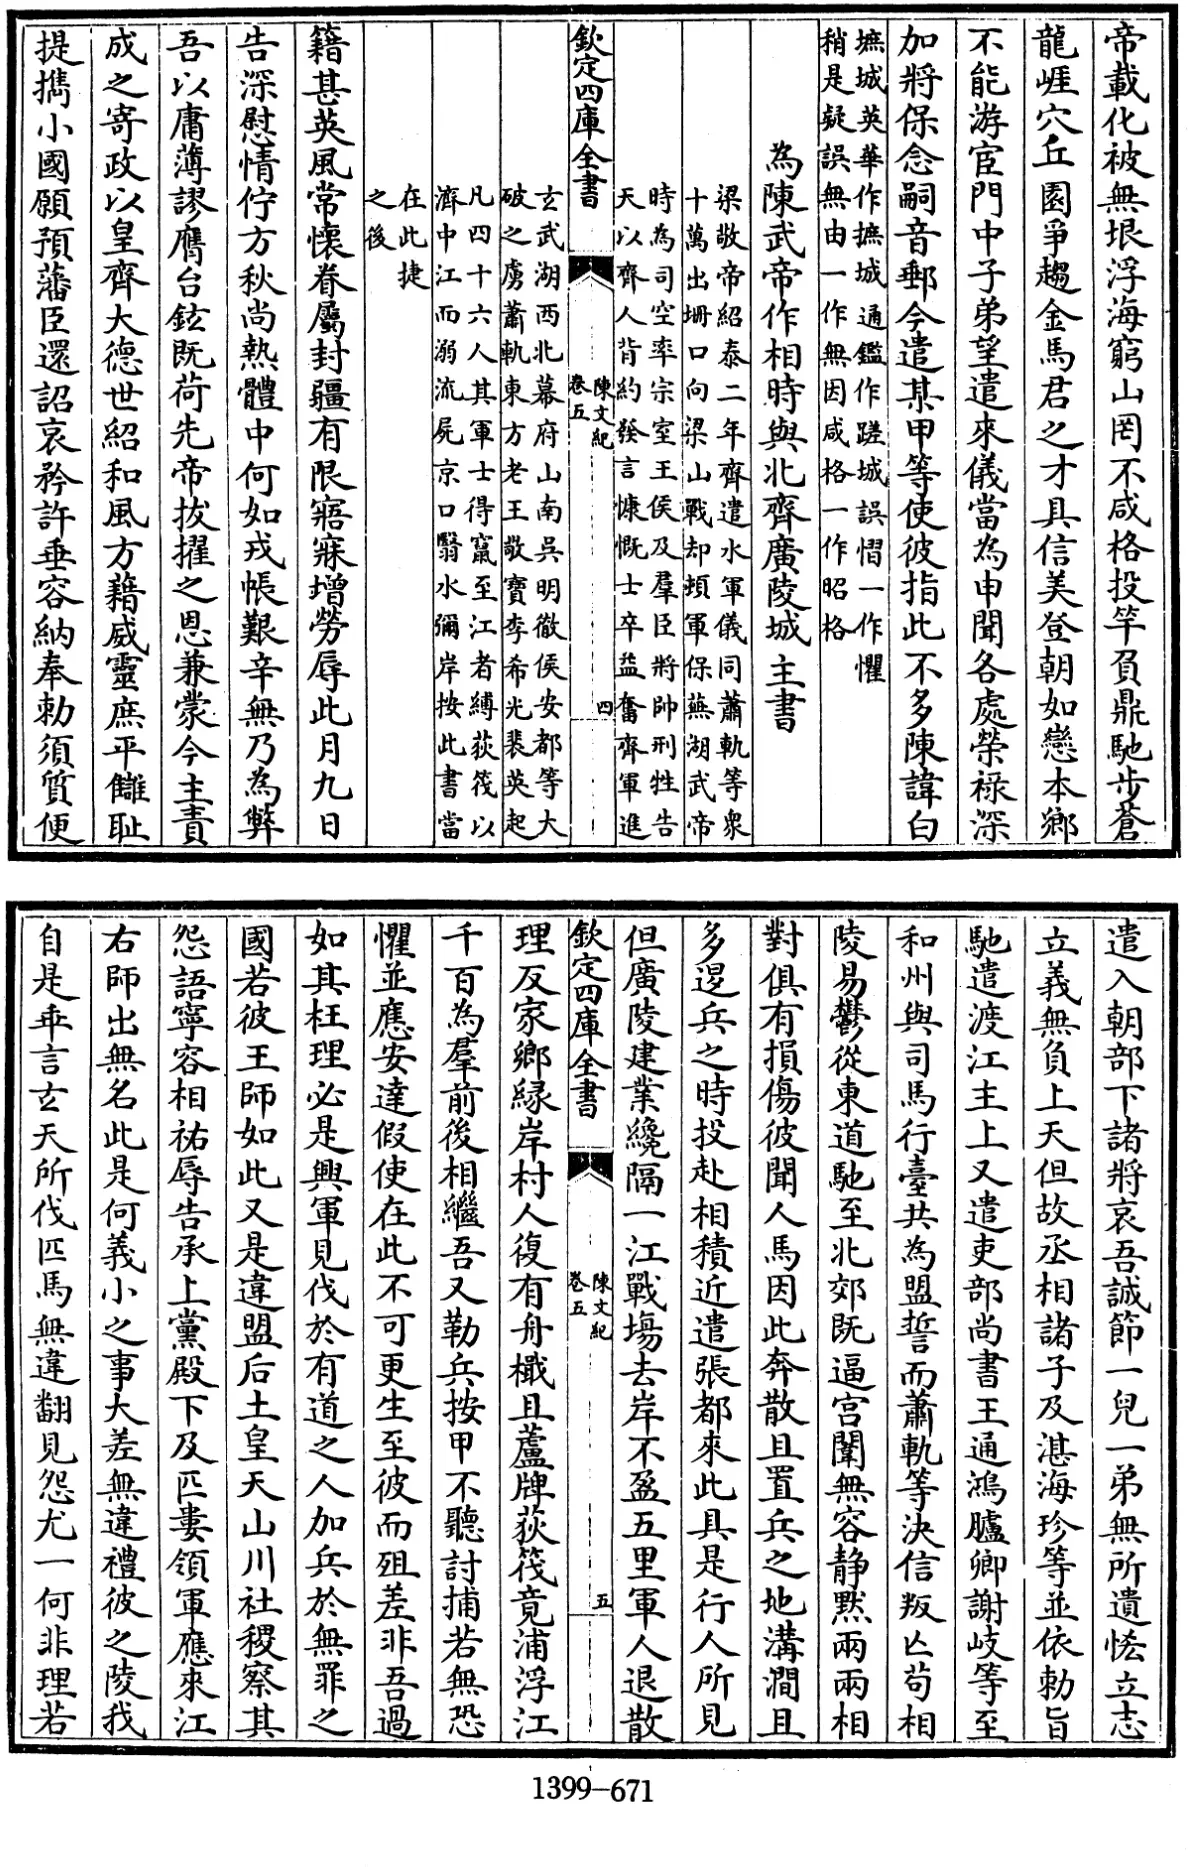 帝載化被無垠浮海窮山罔不咸格投竿負鼎馳步蒼
龍崕穴丘園爭趨金馬君之才具信美登朝如戀本鄉
不能游宦門中子弟望遣來儀當為申聞各處榮祿深
加將保念嗣音郵今遣某甲等使彼指此不多陳諱白
墲城英華作摭城通鑑作蹉城誤慴一作懼
稍是疑誤無由一作無因咸格一作昭格
為陳武帝作相時與北齊廣陵城主書
梁敬帝紹泰二年齊遣水軍儀同蕭軌等衆
十萬出柵口向梁山戰却頓軍保蕪湖武帝
時為司空率宗室王侯及羣臣將帥刑牲告
天以齊人背約發言慷慨士卒益奮齊軍進
欽定四庫全書
陳文紀
卷五
四
玄武湖西北幕府山南吳明徹侯安都等大
破之虜蕭軌東方老王敬寶李希光裴英起
凡四十六人其軍士得竄至江者縛荻筏以
濟中江而溺流屍京口翳水彌岸按此書當
在此捷
之後
籍甚英風常懷眷屬封疆有限寤寐增勞辱此月九日
告深慰情佇方秋尚熱體中何如戎帳艱辛無乃為弊
吾以庸薄謬膺台鉉既荷先帝拔擢之恩兼蒙今主責
成之寄政以皇齊大德世紹和風方藉威靈庶平讎恥
提攜小國願預藩臣還詔哀矜許垂容納奉勅須質便
遣入朝部下諸將哀吾誠節一兒一弟無所遺恡立志
立義無負上天但故丞相諸子及湛海珍等並依勅旨
馳遣渡江主上又遣吏部尚書王通鴻臚卿謝岐等至
和州與司馬行臺共為盟誓而蕭軌等決信叛亾苟相
陵易鬱從東道馳至北郊既逼宮闈無容静默兩兩相
對俱有損傷彼聞人馬因此奔散且置兵之地溝澗且
多逷兵之時投赴相積近遣張都來此具是行人所見
但廣陵建業纔隔一江戰塲去岸不盈五里軍人退散
欽定四庫全書
陳文紀
卷五
五
理反家鄉緣岸村人復有舟檝且蘆牌荻筏竟浦浮江
千百為羣前後相繼吾又勒兵按甲不聽討捕若無恐
懼並應安達假使在此不可更生至彼而殂差非吾過
如其枉理必是興軍見伐於有道之人加兵於無罪之
國若彼王師如此又是違盟后土皇天山川社稷察其
怨語寧容相祐辱告承上黨殿下及匹婁領軍應來江
右師出無名此是何義小之事大差無違禮彼之陵我
自是乖言玄天所伐匹馬無違翻見怨尤一何非理若
1399-671